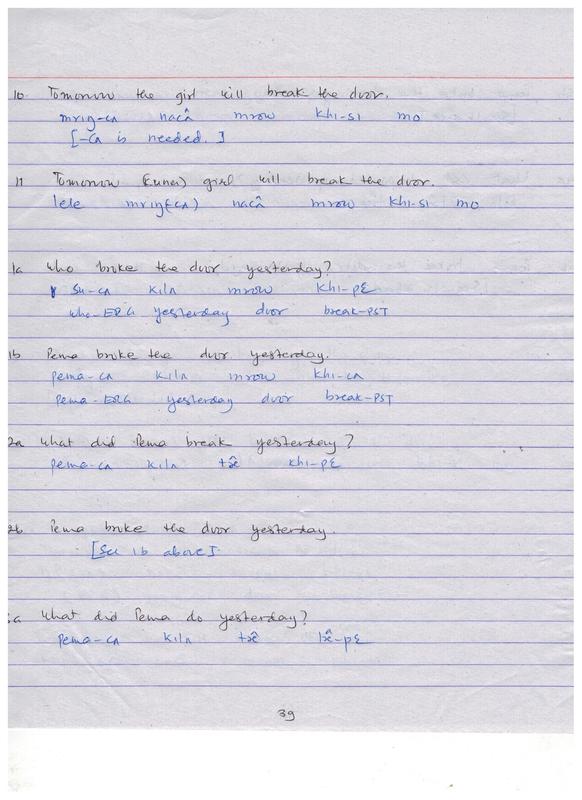 10 Tomorrow the girl will break the door.
mrıŋ-cʌ nacâ mrow khi-si mo
[-cʌ is needed.]
11 Tomorrow (Kunei) girl will break the door.
lele mrıŋ(-cʌ) nacâ mrow khi-si mo
1a Who broke the door yesterday?
su-cʌ kilʌ mrow khi-pɛ
who-ERG yesterday door break-PST
1b Pema broke the door yesterday.
pema-cʌ kilʌ mrow khi-cʌ
Pema-ERG yesterday door break-PST
2a What did Pema break yesterday?
pema-cʌ kilʌ khi-pɛ
2b Pema broke the door yesterday.
[See 1b above]
a What did Pema do yesterday?
pema-cʌ kilʌ
39